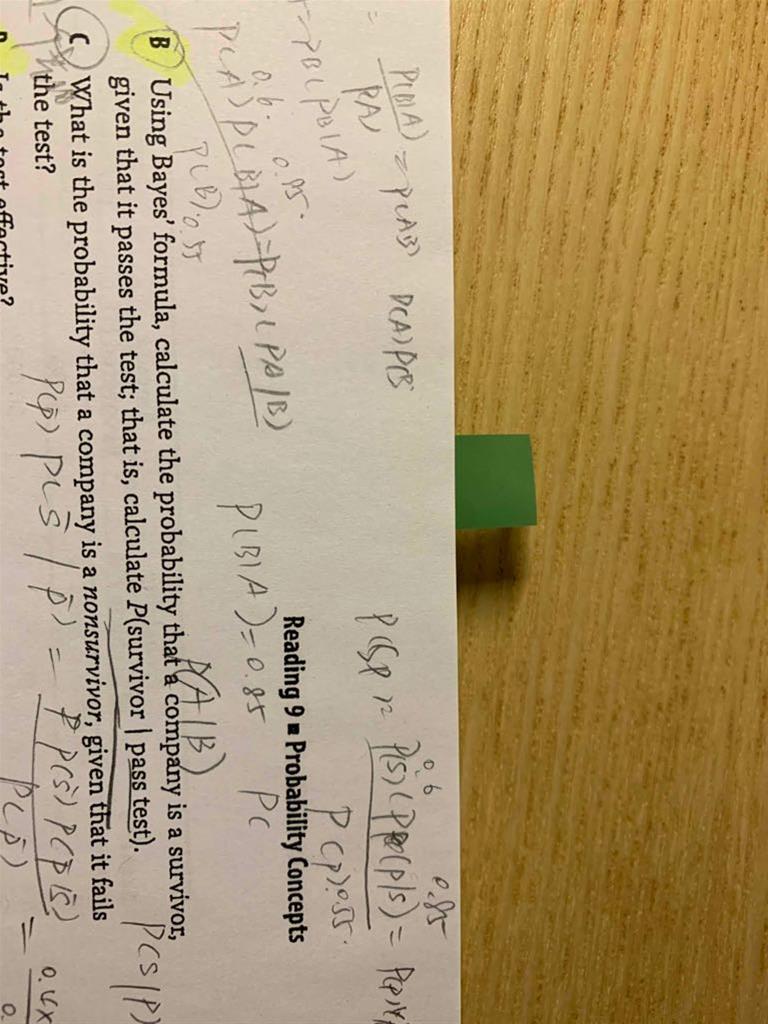 = P(B|A) / P(A) = P(AB) P(A)P(B
P(S|P) = P(S) (P(P|S) / P(P) 0.55. =
0.6 0.85
= PB(PB|A)
0.6. 0.85.
Reading 9 ■ Probability Concepts
P(A) P(B|A) = P(B) (PA|B) P(B|A) = 0.85 P(
P(B) 0.55
P(A|B)
B Using Bayes’ formula, calculate the probability that a company is a survivor,
given that it passes the test; that is, calculate P(survivor | pass test).
P(S|P)
C What is the probability that a company is a nonsurvivor, given that it fails
the test?
P(p̄) P(s̄ | p̄) = P(s̄) P(p̄|s̄) / P(p̄) = 0.4x / 0.
Is the test effective?